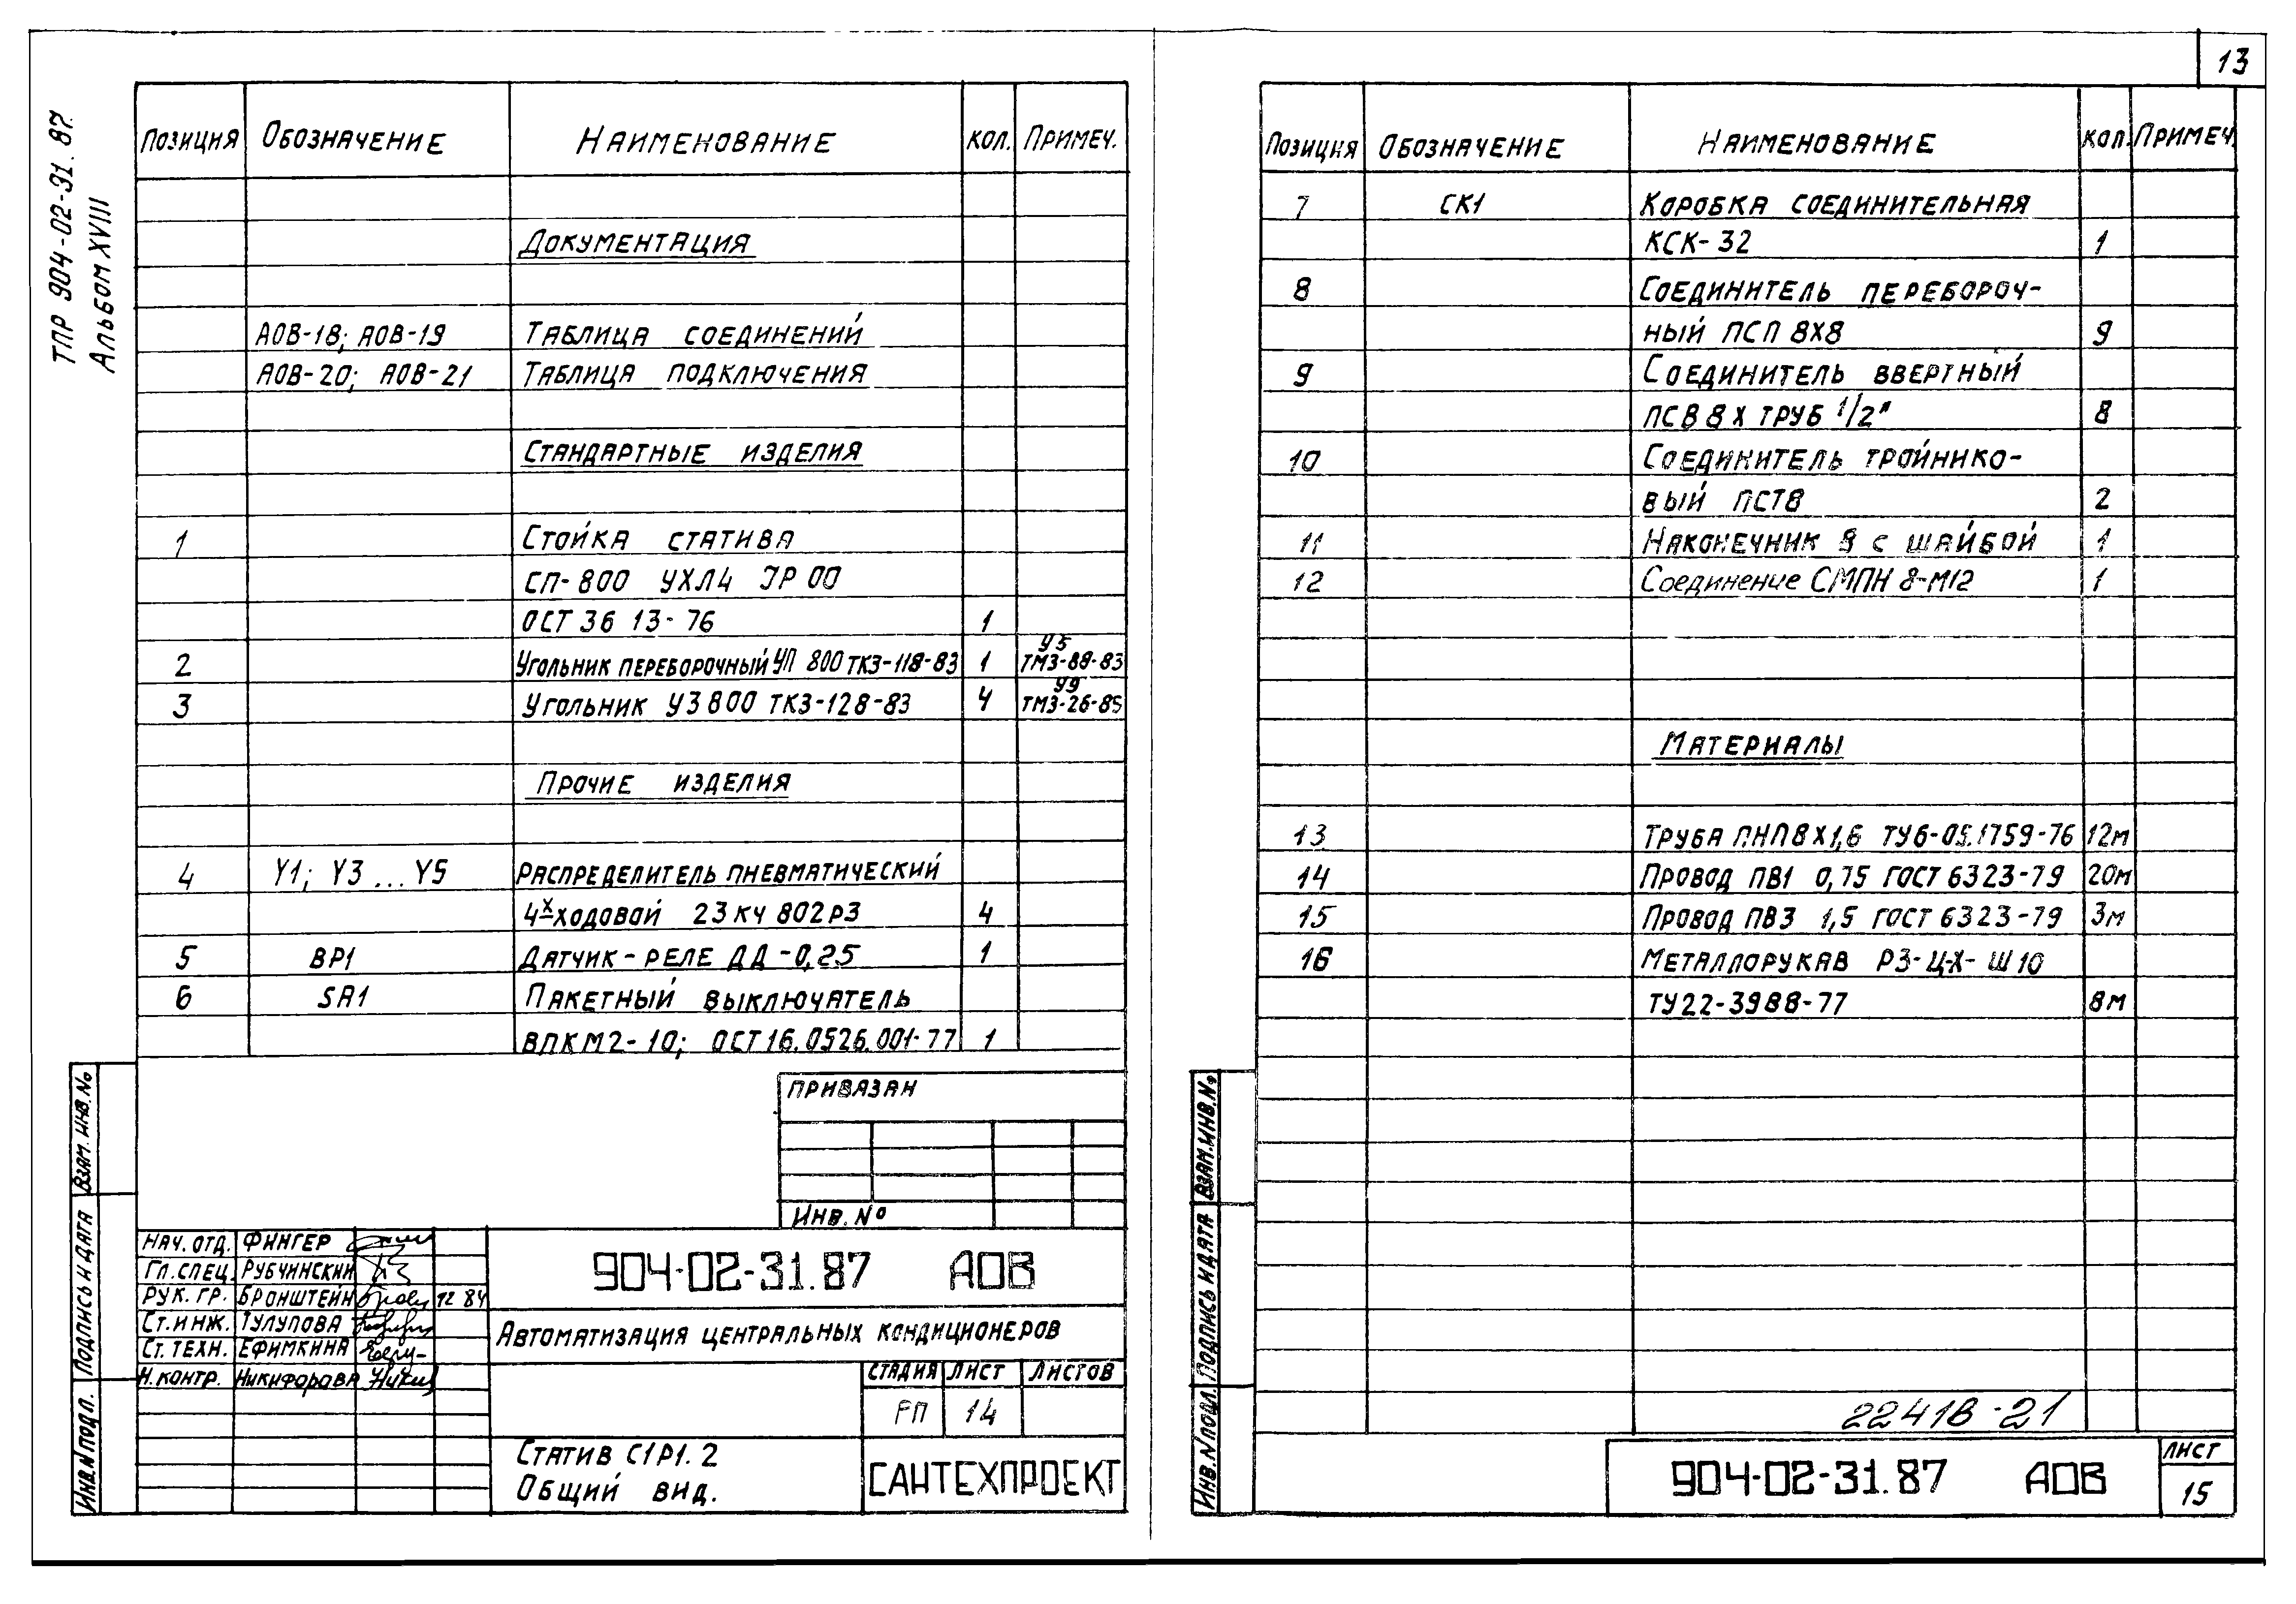 13
ТПР 904-02-31.87.
Альбом XVIII
Позиция Обозначение Наименование Кол. Примеч.
Документация
АОВ-18; АОВ-19 Таблица соединений
АОВ-20; АОВ-21 Таблица подключения
Стандартные изделия
1 Стойка статива
СП-800 УХЛ4 JP 00
ОСТ 36 13-76 1
2 Угольник переборочный УП 800 ТК3-118-83 1 У5 ТМ3-88-83
3 Угольник УЗ 800 ТК3-128-83 4 У9 ТМ3-26-85
Прочие изделия
4 Y1; Y3 ... Y5 Распределитель пневматический
4х ходовой 23 кч 802р3 4
5 BP1 Датчик-реле ДД-0,25 1
6 SA1 Пакетный выключатель
ВПКМ2-10; ОСТ16.0526.001-77 1
Привязан
Инв. №
Взам. инв. №
Подпись и дата
Инв. № подл.
Нач. отд. Фингер
Гл. спец. Рубчинский
Рук. гр. Бронштейн 12 84
Ст. инж. Тулупова
Ст. техн. Ефимкина
Н. контр. Никифорова
904-02-31.87 АОВ
Автоматизация центральных кондиционеров
Стадия Лист Листов
РП 14
Статив С1Р1.2
Общий вид.
САНТЕХПРОЕКТ
Позиция Обозначение Наименование Кол. Примеч.
7 СК1 Коробка соединительная
КСК-32 1
8 Соединитель перебороч-
ный ПСП 8х8 9
9 Соединитель ввертный
ПСВ 8 х труб 1/2" 8
10 Соединитель тройнико-
вый ПСТ8 2
11 Наконечник 8 с шайбой 1
12 Соединение СМПН 8-М12 1
Материалы
13 Труба ПНП 8х1,6 ТУ6-05.1759-76 12м
14 Провод ПВ1 0,75 ГОСТ 6323-79 20м
15 Провод ПВ3 1,5 ГОСТ 6323-79 3м
16 Металлорукав Р3-ЦХ-Ш10
ТУ22-3988-77 8м
Взам. инв. №
Подпись и дата
Инв. № подл.
22418-21
904-02-31.87 АОВ
Лист
15